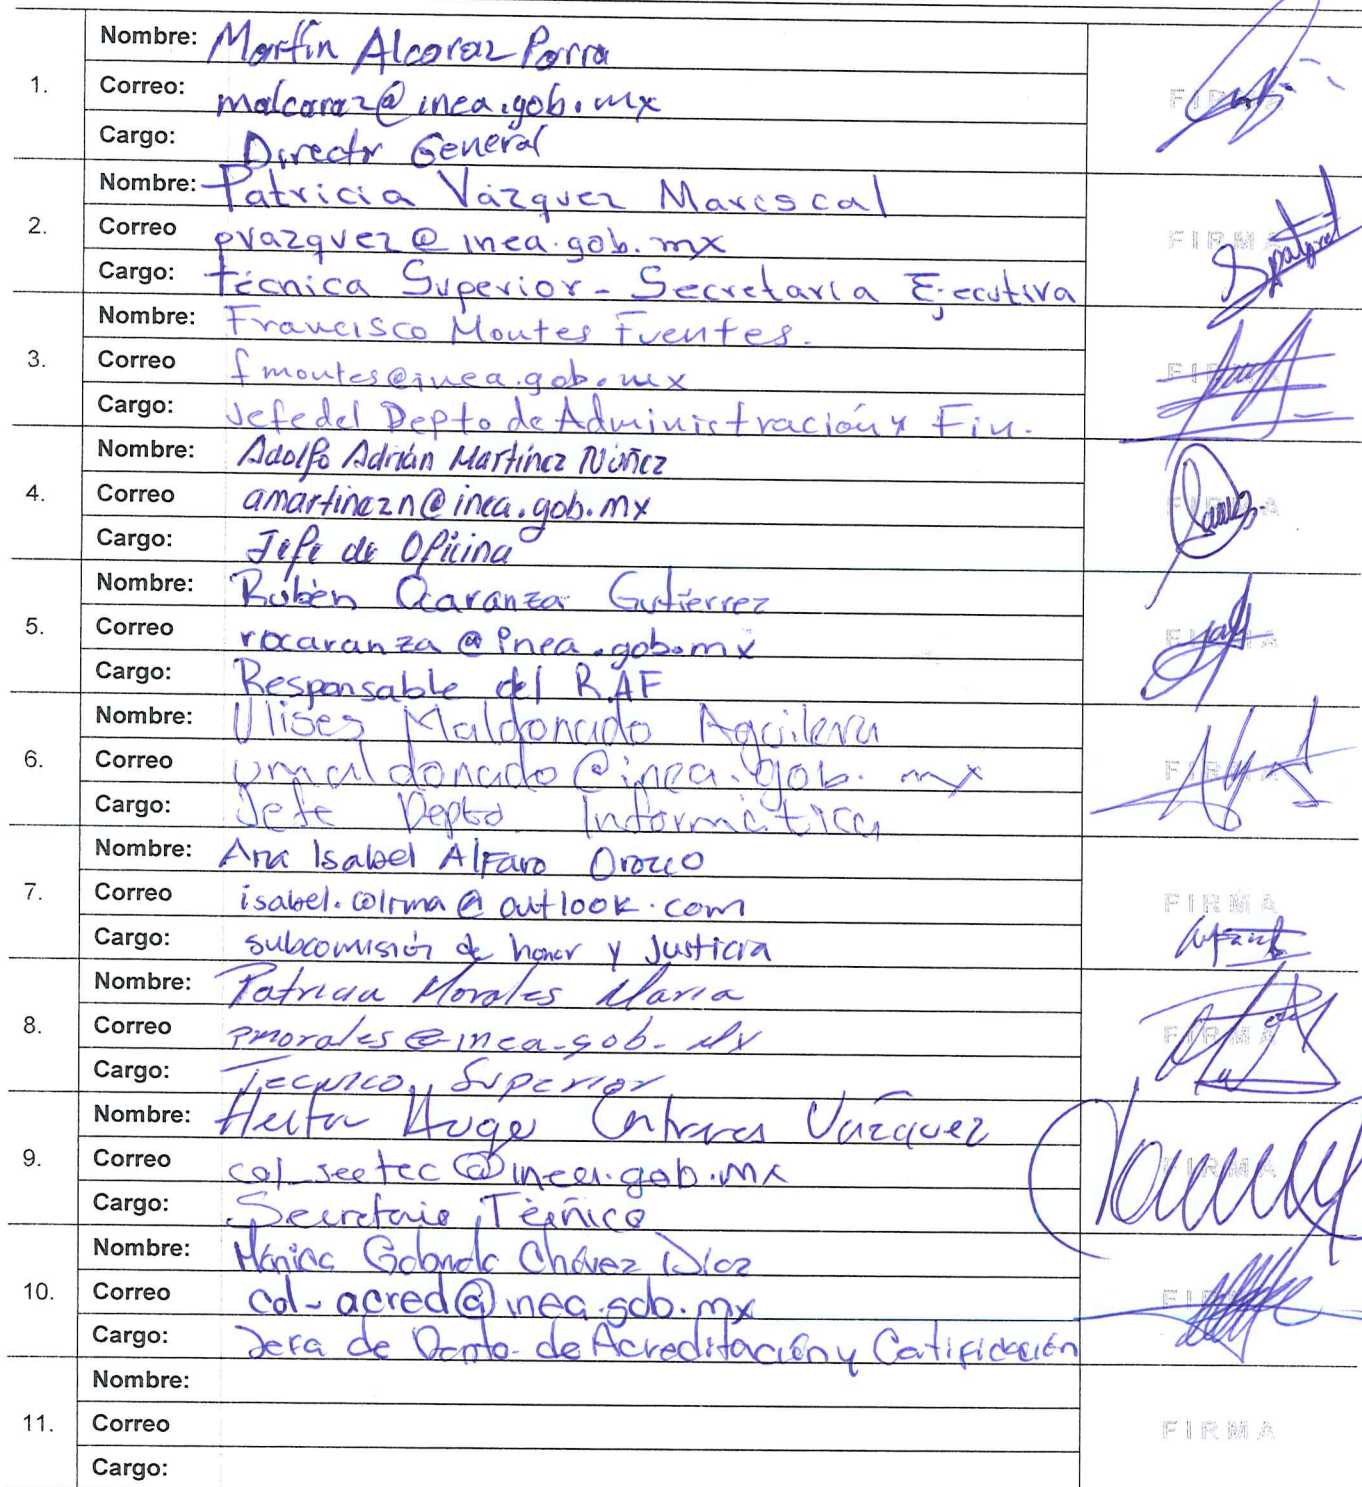 1.
Nombre: Martín Alcaraz Parra
Correo: malcaraz@inea.gob.mx
Cargo: Director General
FIRMA
2.
Nombre: Patricia Vázquez Mariscal
Correo pvazquez@inea.gob.mx
Cargo: técnica Superior - Secretaria Ejecutiva
FIRMA
3.
Nombre: Francisco Montes Fuentes.
Correo fmontes@inea.gob.mx
Cargo: Jefe del Depto de Administración y Fin.
FIRMA
4.
Nombre: Adolfo Adrián Martínez Núñez
Correo amartinezn@inea.gob.mx
Cargo: Jefe de Oficina
FIRMA
5.
Nombre: Rubén Ocaranza Gutiérrez
Correo rocaranza@inea.gob.mx
Cargo: Responsable del RAF
FIRMA
6.
Nombre: Ulises Maldonado Aguilera
Correo umaldonado@inea.gob.mx
Cargo: Jefe Depto Informática
FIRMA
7.
Nombre: Ana Isabel Alfaro Orozco
Correo isabel.colima@outlook.com
Cargo: subcomisión de honor y Justicia
FIRMA
8.
Nombre: Patricia Morales María
Correo pmorales@inea.gob.mx
Cargo: Tecnico Superior
FIRMA
9.
Nombre: Hector Hugo Contreras Vázquez
Correo col_sectec@inea.gob.mx
Cargo: Secretario Técnico
FIRMA
10.
Nombre: Mónica Chávez Díaz
Correo col-acred@inea.gob.mx
Cargo: Jefa de Depto. de Acreditación y Certificación
FIRMA
11.
Nombre:
Correo
Cargo:
FIRMA